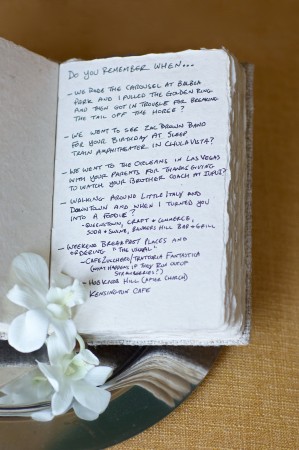 Do you remember when...
- We rode the carousel at Balboa
Park and I pulled the golden ring
and then got in trouble for breaking
the tail off the horse?
- We went to see Zac Brown Band
for your birthday at Sleep
Train Amphitheater in Chula Vista?
- We went to the Orleans in Las Vegas
with your parents for Thanksgiving
to watch your brother coach at
- Walking around Little Italy and
Downtown and when I turned you
into a foodie?
- Queenstown, Craft + Commerce,
Soda + Swine, Bankers Hill Bar + Grill
- Weekend breakfast places and
ordering "the usual"
- Cafe Zucchero/Trattoria Fantastica
(what happens if they run out of
strawberries!)
- Hob Knob Hill (after church)
Kensington Cafe